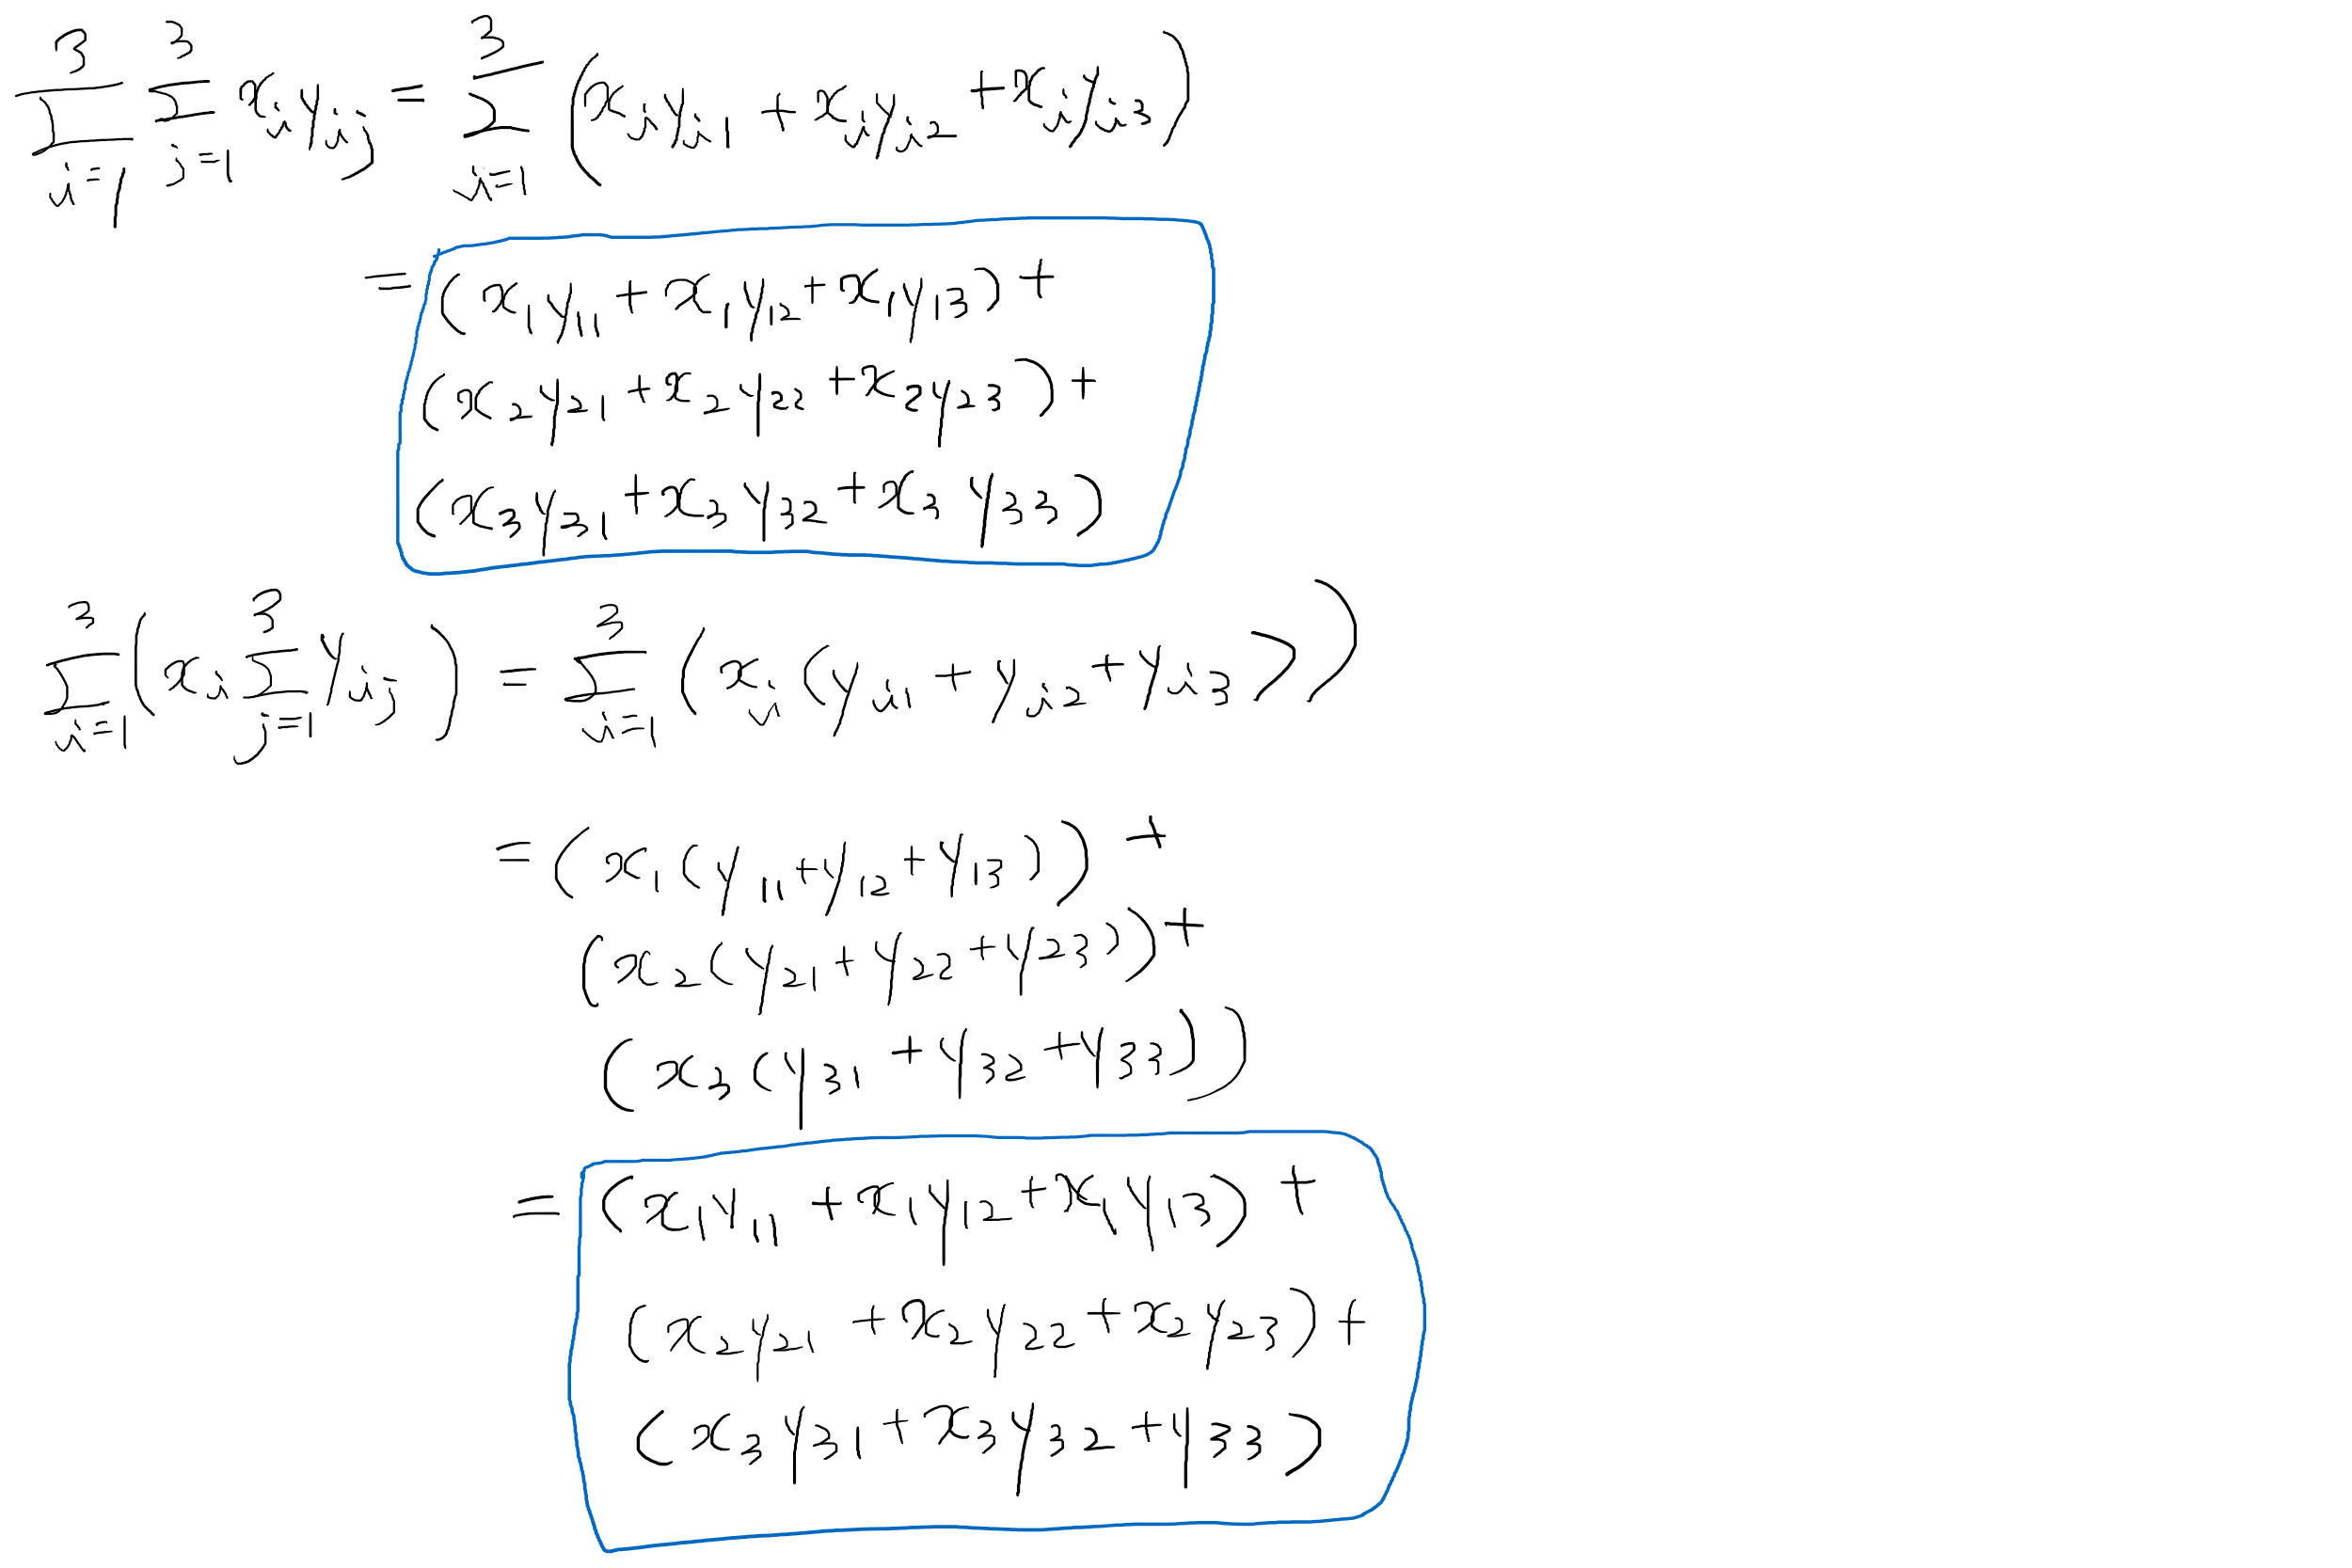 $\sum_{i=1}^{3} \sum_{j=1}^{3} x_i y_{ij} = \sum_{i=1}^{3} (x_i y_{i1} + x_i y_{i2} + x_i y_{i3})$
$= (x_1 y_{11} + x_1 y_{12} + x_1 y_{13}) +$
$(x_2 y_{21} + x_2 y_{22} + x_2 y_{23}) +$
$(x_3 y_{31} + x_3 y_{32} + x_3 y_{33})$
$\sum_{i=1}^{3} (x_i \sum_{j=1}^{3} y_{ij}) = \sum_{i=1}^{3} (x_i (y_{i1} + y_{i2} + y_{i3}))$
$= (x_1 (y_{11} + y_{12} + y_{13})) +$
$(x_2 (y_{21} + y_{22} + y_{23})) +$
$(x_3 (y_{31} + y_{32} + y_{33}))$
$= (x_1 y_{11} + x_1 y_{12} + x_1 y_{13}) +$
$(x_2 y_{21} + x_2 y_{22} + x_2 y_{23}) +$
$(x_3 y_{31} + x_3 y_{32} + y_{33})$